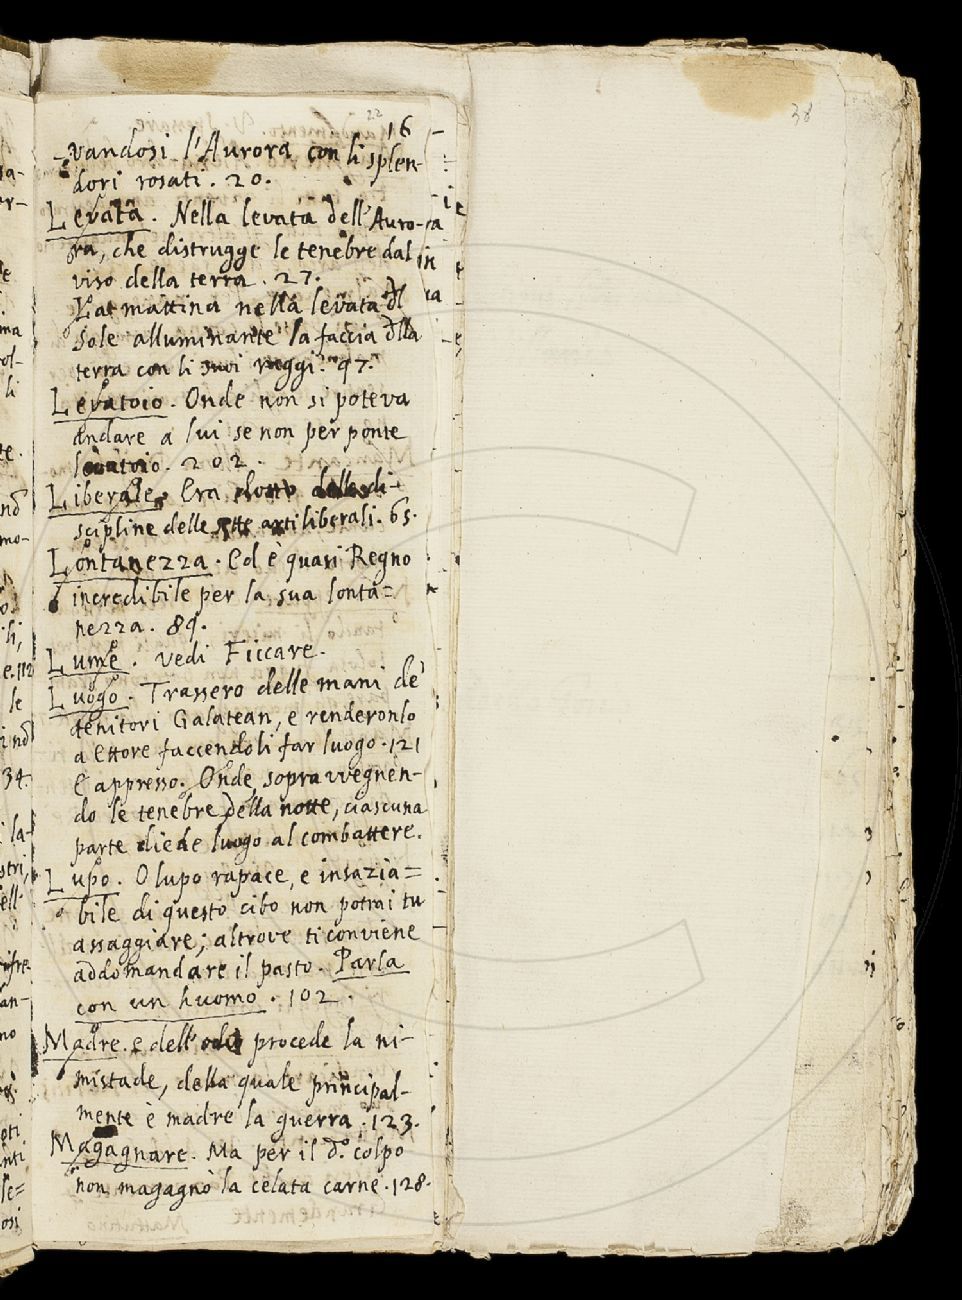 22
16
38
vandosi l'Aurora con li splen-
dori rosati. 20.
Levata. Nella levata dell'Auro-
ra, che distrugge le tenebre dal
viso della terra. 27.
La mattina nella levata dl
Sole alluminante la faccia dlla
terra con li suoi raggi. 97.
Levatoio. Onde non si poteva
andare a lui se non per ponte
levatoio. 202.
Liberale. Era dotto delle di-
scipline delle sette arti liberali. 65.
Lontanezza. Ed e quasi Regno
incredibile per la sua lonta=
nezza. 89.
Lume. vedi Ficcare.
Luogo. Trassero delle mani de'
tenitori Galatean, e renderonlo
a Ettore faccendoli far luogo. 121
E appresso. Onde sopravvegnen-
do le tenebre della notte, ciascuna
parte diede luogo al combattere.
Lupo. O lupo rapace, e insazia=
bile di questo cibo non potrai tu
assaggiare; altrove ti conviene
addomandare il pasto. Parla
con un huomo. 102.
Madre. e dell'odio procede la ni-
mistade, della quale principal-
mente è madre la guerra. 123.
Magagnare. Ma per il d.o colpo
non magagnò la celata carne. 128.